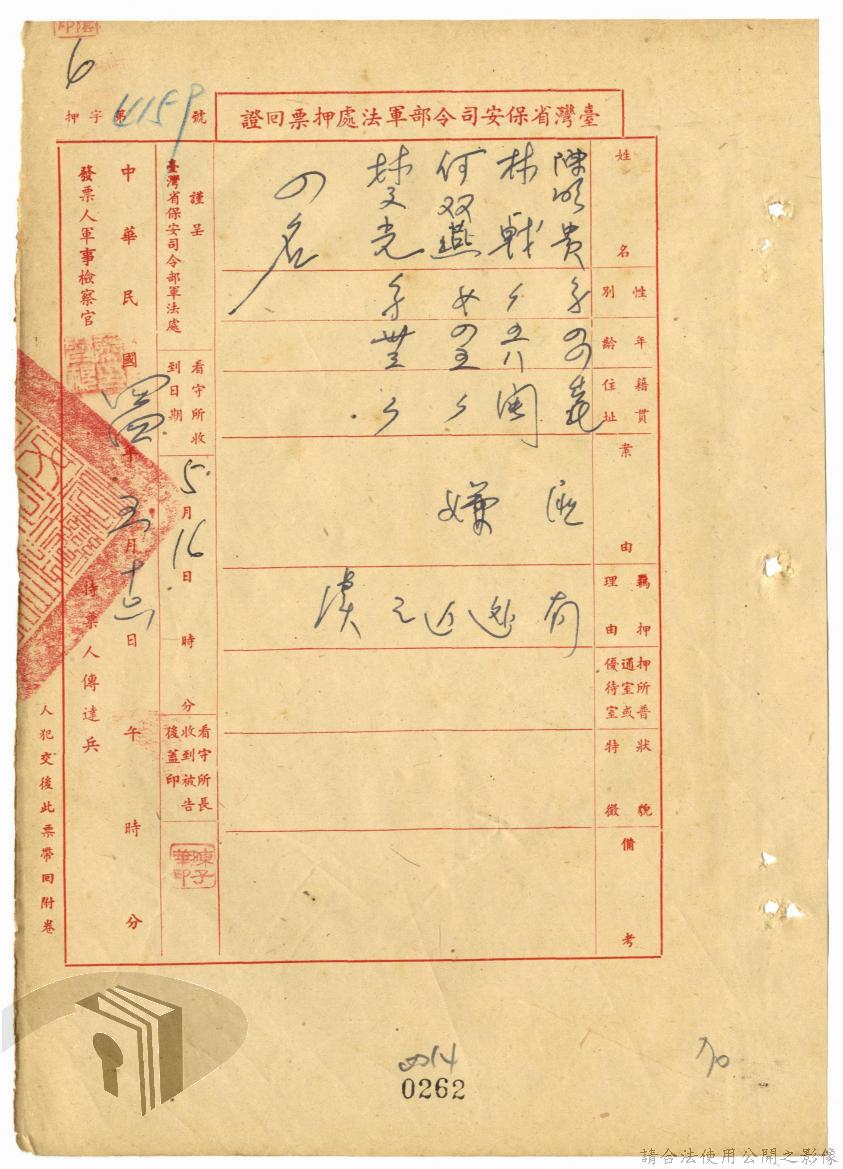 6
臺灣省保安司令部軍法處押票回證
押字第4159號
姓名
陳明貴
林戰
何双燕
林文光
四名
性別
女
年齡
籍貫住址
閩
案由
嫌
羈押理由
有逃亡之
押所普通室或優待室
狀貌特徵
備考
謹呈
臺灣省保安司令部軍法處
看守所收到日期
5月16日 時 分
看守所長收到被告後蓋印
陳子華印
中華民國 年五月十六日 午 時 分
發票人軍事檢察官
持票人傳達兵
人犯交後此票帶回附卷
0014
0262
70
請合法使用公開之影像